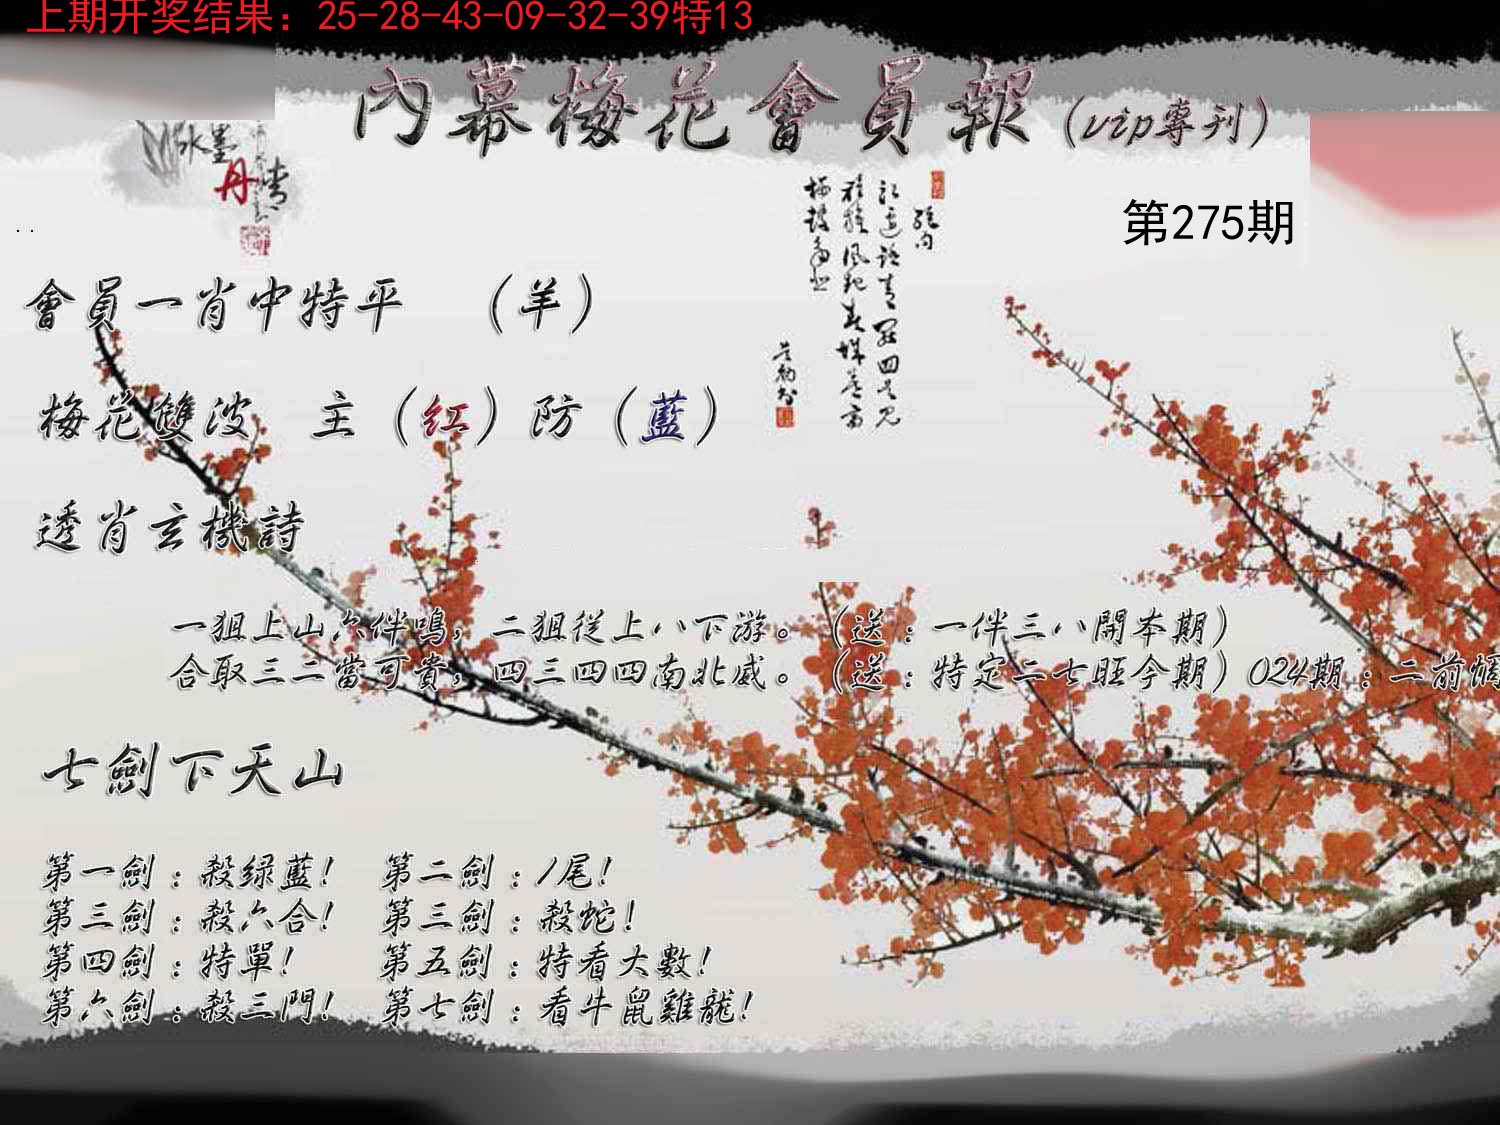 上期开奖结果：25-28-43-09-32-39特13
內幕梅花會員報（vip專刊）
水墨
丹情
第275期
會員一肖中特平 （羊）
梅花雙波 主（紅）防（藍）
透肖玄機詩
一狙上山六伴鳴，二狙從上八下游。（送：一伴三八開本期）
合取三二當可貴，四三四四南北威。（送：特定二七旺今期）024期：二前
七劍下天山
第一劍：殺绿藍！ 第二劍：1尾！
第三劍：殺六合！ 第三劍：殺蛇！
第四劍：特單！ 第五劍：特看大數！
第六劍：殺三門！ 第七劍：看牛鼠雞龍！